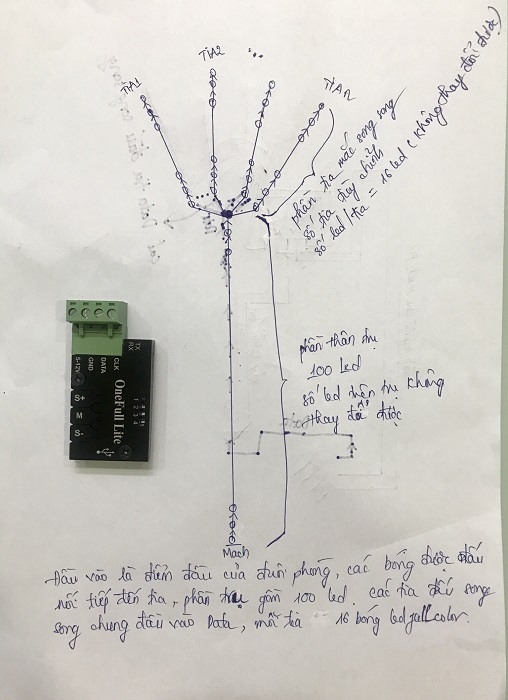 TIA1
TIA2
TIAn
phần tia mắc song song
số tia tùy chỉnh
số led/tia = 16 led (không thay đổi được)
TX
RX
CLK
DATA
GND
5-12V
1 2 3 4
OneFull Lite
S+
M
S-
phần thân trụ
100 led
số led trên trụ không
thay đổi được
Mạch
Đầu vào là điểm đầu của đuôi phóng, các bóng được đấu
nối tiếp đến tia, phần trụ gồm 100 led. các tia đấu song
song chung đầu vào Data, mỗi tia 16 bóng led full color.